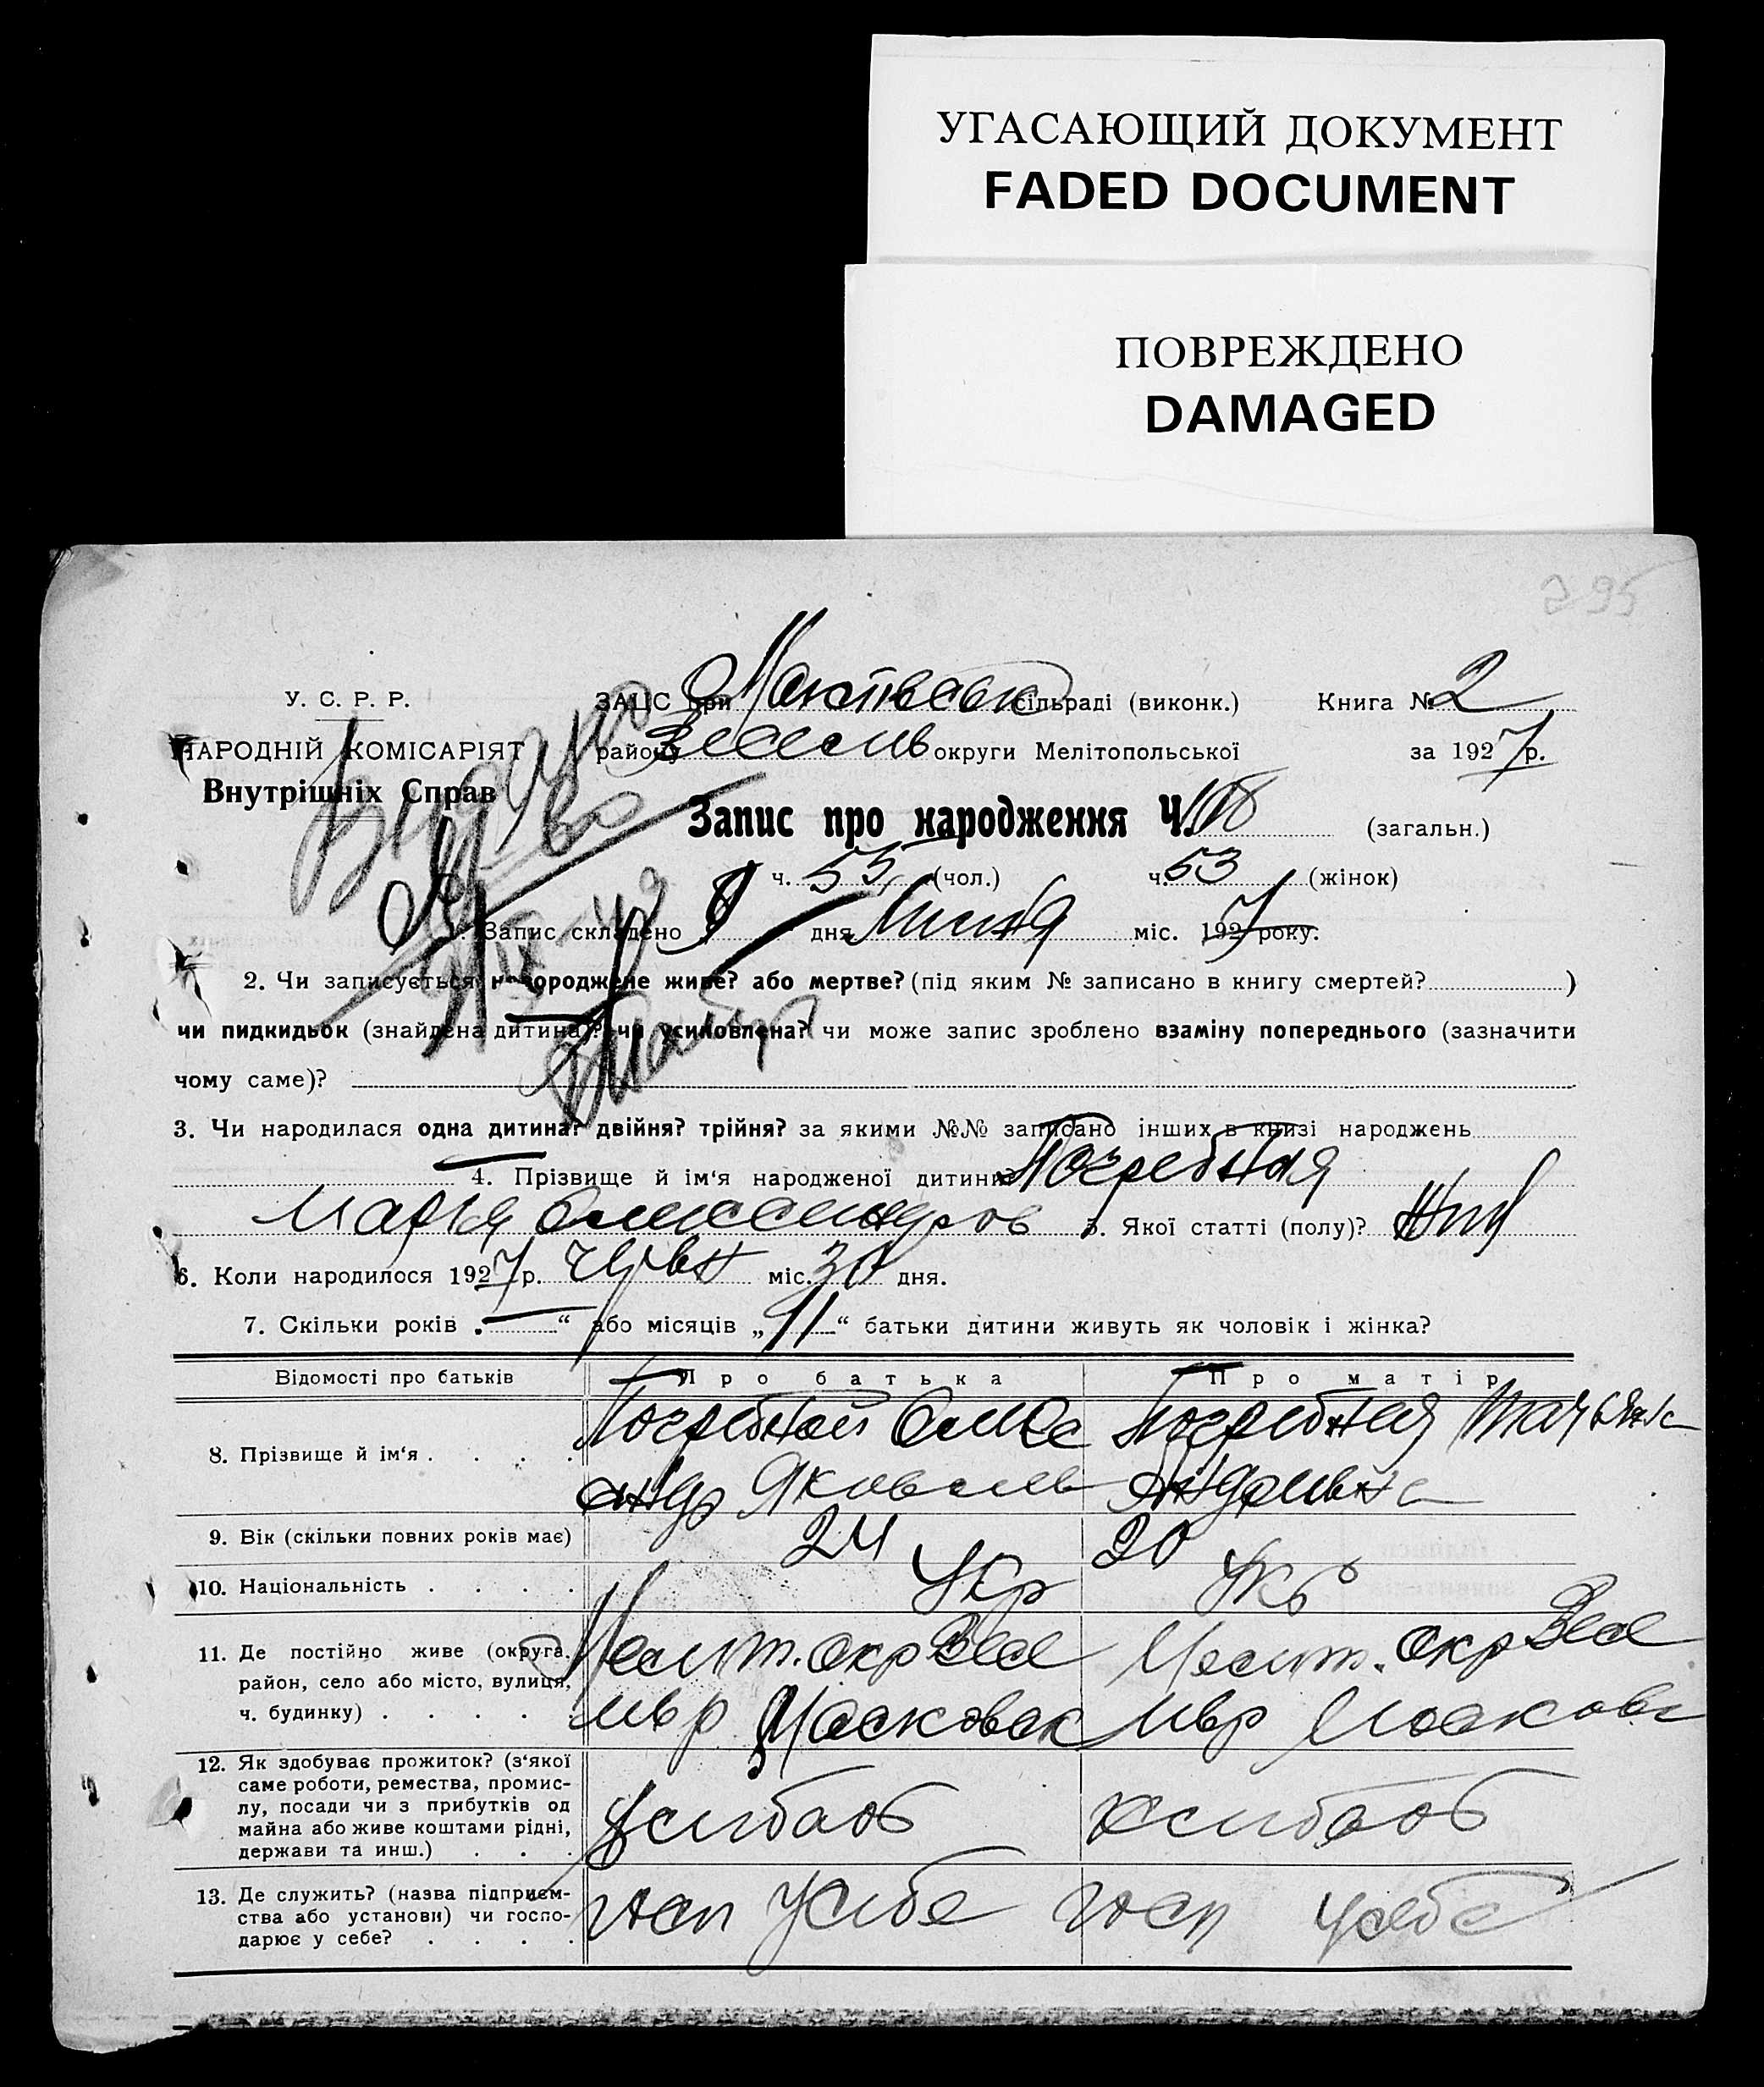 УГАСАЮЩИЙ ДОКУМЕНТ
FADED DOCUMENT
ПОВРЕЖДЕНО
DAMAGED
295
У. С. Р. Р.
НАРОДНІЙ КОМІСАРІЯТ
Внутрішніх Справ
ЗАЦС при сільраді (виконк.) Книга № 2
району округи Мелітопольської за 1927 р.
Запис про народження Ч. 108 (загальн.)
ч. 55 (чол.) ч. 53 (жінок)
Запис складено дня Липня міс. 1927 року.
2. Чи записується новороджене живе? або мертве? (під яким № записано в книгу смертей? )
чи пидкидьок (знайдена дитина)? чи усиновлена? чи може запис зроблено взаміну попереднього (зазначити
чому саме)?
3. Чи народилася одна дитина? двійня? трійня? за якими №№ записано інших в книзі народжень
4. Прізвище й ім'я народженої дитини? Погребная
Мария Александров 5. Якої статті (полу)?
6. Коли народилося 1927 р. червн міс. 30 дня.
7. Скільки років „—“ або місяців „11“ батьки дитини живуть як чоловік і жінка?
Відомості про батьків Про батька Про матір
8. Прізвище й ім'я . . . . Погребной Олекс Погребная Татьяна
андр Яковлев Андріївна
9. Вік (скільки повних років має) 24 20
10. Національність . . . . Укр Укр
11. Де постійно живе (округа, Меліт. окр Весе Меліт. окр Весе
район, село або місто, вулиця,
ч. будинку) . . . . . лівр Московськ лівр Московс
12. Як здобуває прожиток? (з'якої
саме роботи, ремества, промис-
лу, посади чи з прибутків од
майна або живе коштами рідні,
держави та инш.) . . . хлибооб хлибооб
13. Де служить? (назва підприєм-
ства або установи) чи госпо-
дарює у себе? . . . . госп у себе госп у себе